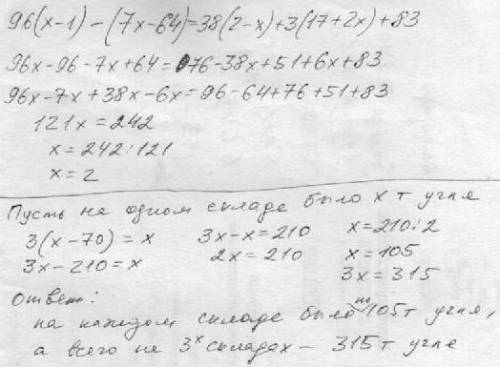 96(x-1)-(7x-64)=38(2-x)+3(17+2x)+83
96x-96-7x+64=76-38x+51+6x+83
96x-7x+38x-6x=96-64+76+51+83
121x=242
x=242:121
x=2
Пусть на одном складе было x т угля
3(x-70)=x 3x-x=210 x=210:2
3x-210=x 2x=210 x=105
3x=315
Ответ:
на каждом складе было по 105т угля,
а всего не 3х складах - 315т угле